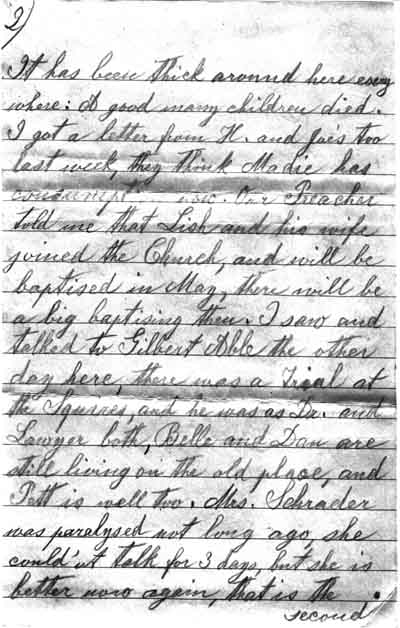 2)
It has been thick around here every
where: A good many children died.
I got a letter from H. and Joe's too
last week, they think Madie has
now. Our Preacher
told me that Lish and his wife
joined the Church, and will be
baptised in May, there will be
a big baptising then. I saw and
talked to Gilbert Able the other
day here, there was a Trial at
the Squires, and he was as Dr. and
Lawyer both, Belle and Dan are
still living on the old place, and
Pett is well too. Mrs. Schrader
was paralysed not long ago, she
could'nt talk for 3 days, but she is
better now again, that is the
second